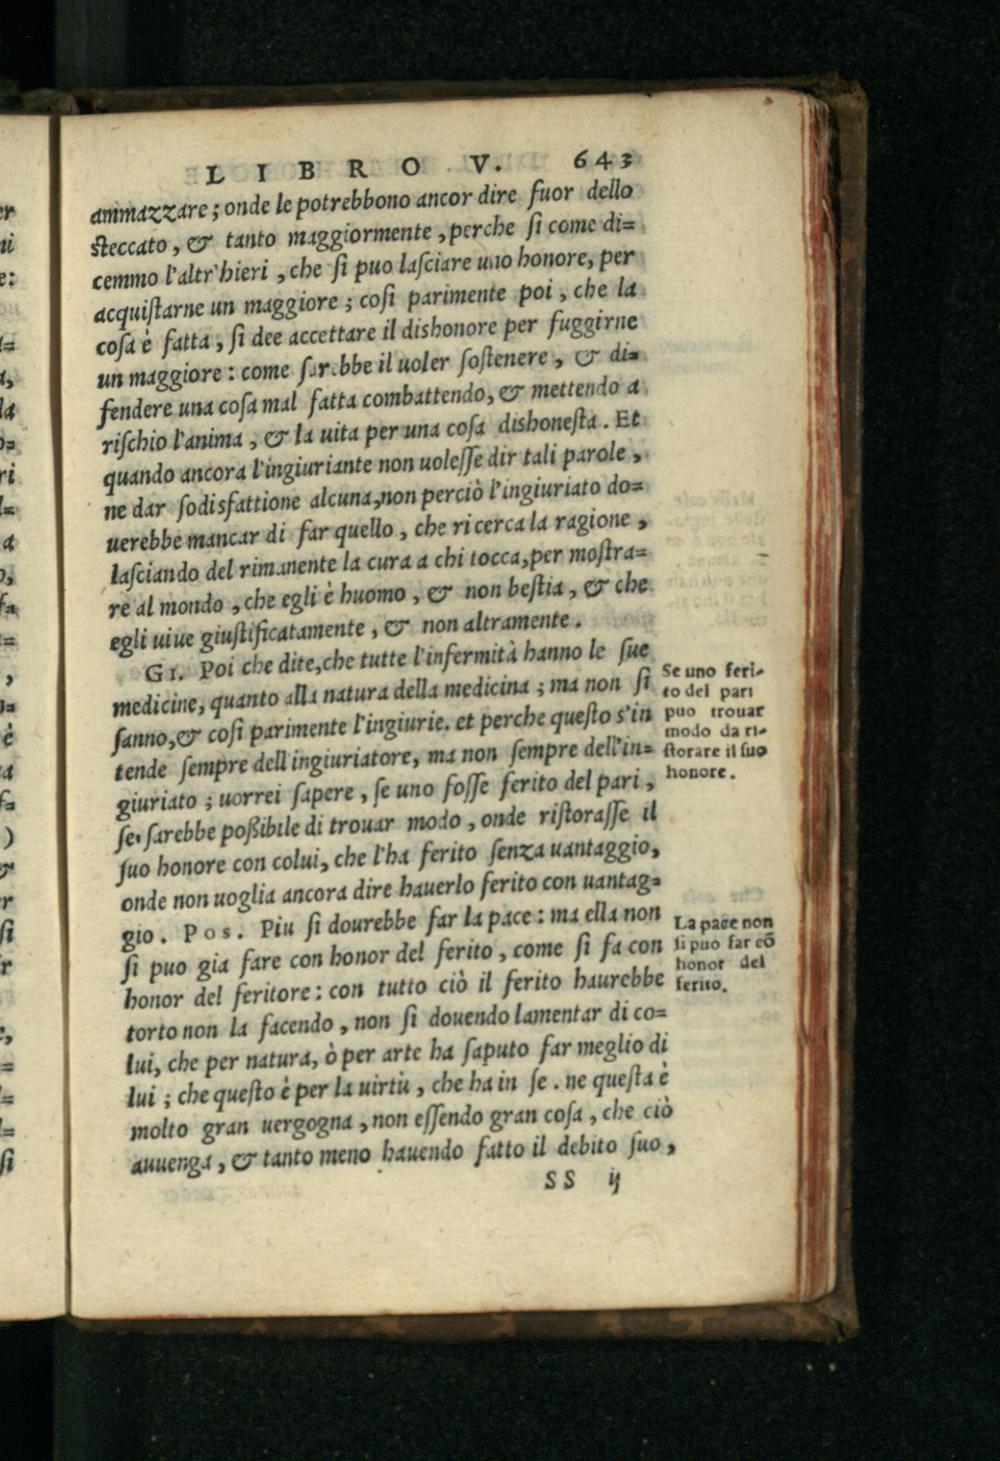 LIBRO V. 643
ammazzare; onde le potrebbono ancor dire fuor dello
steccato, & tanto maggiormente, perche ſi come di=
cemmo l'altr'hieri, che ſi puo laſciare uno honore, per
acquiſtarne un maggiore; coſi parimente poi, che la
coſa è fatta, ſi dee accettare il dishonore per fuggirne
un maggiore: come ſarebbe il uoler ſoſtenere, & di=
fendere una coſa mal fatta combattendo, & mettendo a
riſchio l'anima, & la uita per una coſa dishoneſta. Et
quando ancora l'ingiuriante non uoleſſe dir tali parole,
ne dar ſodisfattione alcuna, non perciò l'ingiuriato do=
uerebbe mancar di far quello, che ricerca la ragione,
laſciando del rimanente la cura a chi tocca, per moſtra=
re al mondo, che egli è huomo, & non beſtia, & che
egli uiue giuſtificatamente, & non altramente.
GI. Poi che dite, che tutte l'infermità hanno le ſue
medicine, quanto alla natura della medicina; ma non ſi
ſanno, & coſi parimente l'ingiurie. et perche queſto s'in
tende ſempre dell'ingiuriatore, ma non ſempre dell'in=
giuriato; uorrei ſapere, ſe uno foſſe ferito del pari,
ſe ſarebbe poßibile di trouar modo, onde riſtoraſſe il
ſuo honore con colui, che l'ha ferito ſenza uantaggio,
onde non uoglia ancora dire hauerlo ferito con uantag=
gio. Pos. Piu ſi dourebbe far la pace: ma ella non
ſi puo gia fare con honor del ferito, come ſi fa con
honor del feritore: con tutto ciò il ferito haurebbe
torto non la facendo, non ſi douendo lamentar di co=
lui, che per natura, ò per arte ha ſaputo far meglio di
lui; che queſto è per la uirtù, che ha in ſe. ne queſta è
molto gran uergogna, non eſſendo gran coſa, che ciò
auuenga, & tanto meno hauendo fatto il debito ſuo,
SS ij
Se uno feri-
to del pari
puo trouar
modo da ri-
ſtorare il ſuo
honore.
La pace non
ſi puo far cō
honor del
ferito.